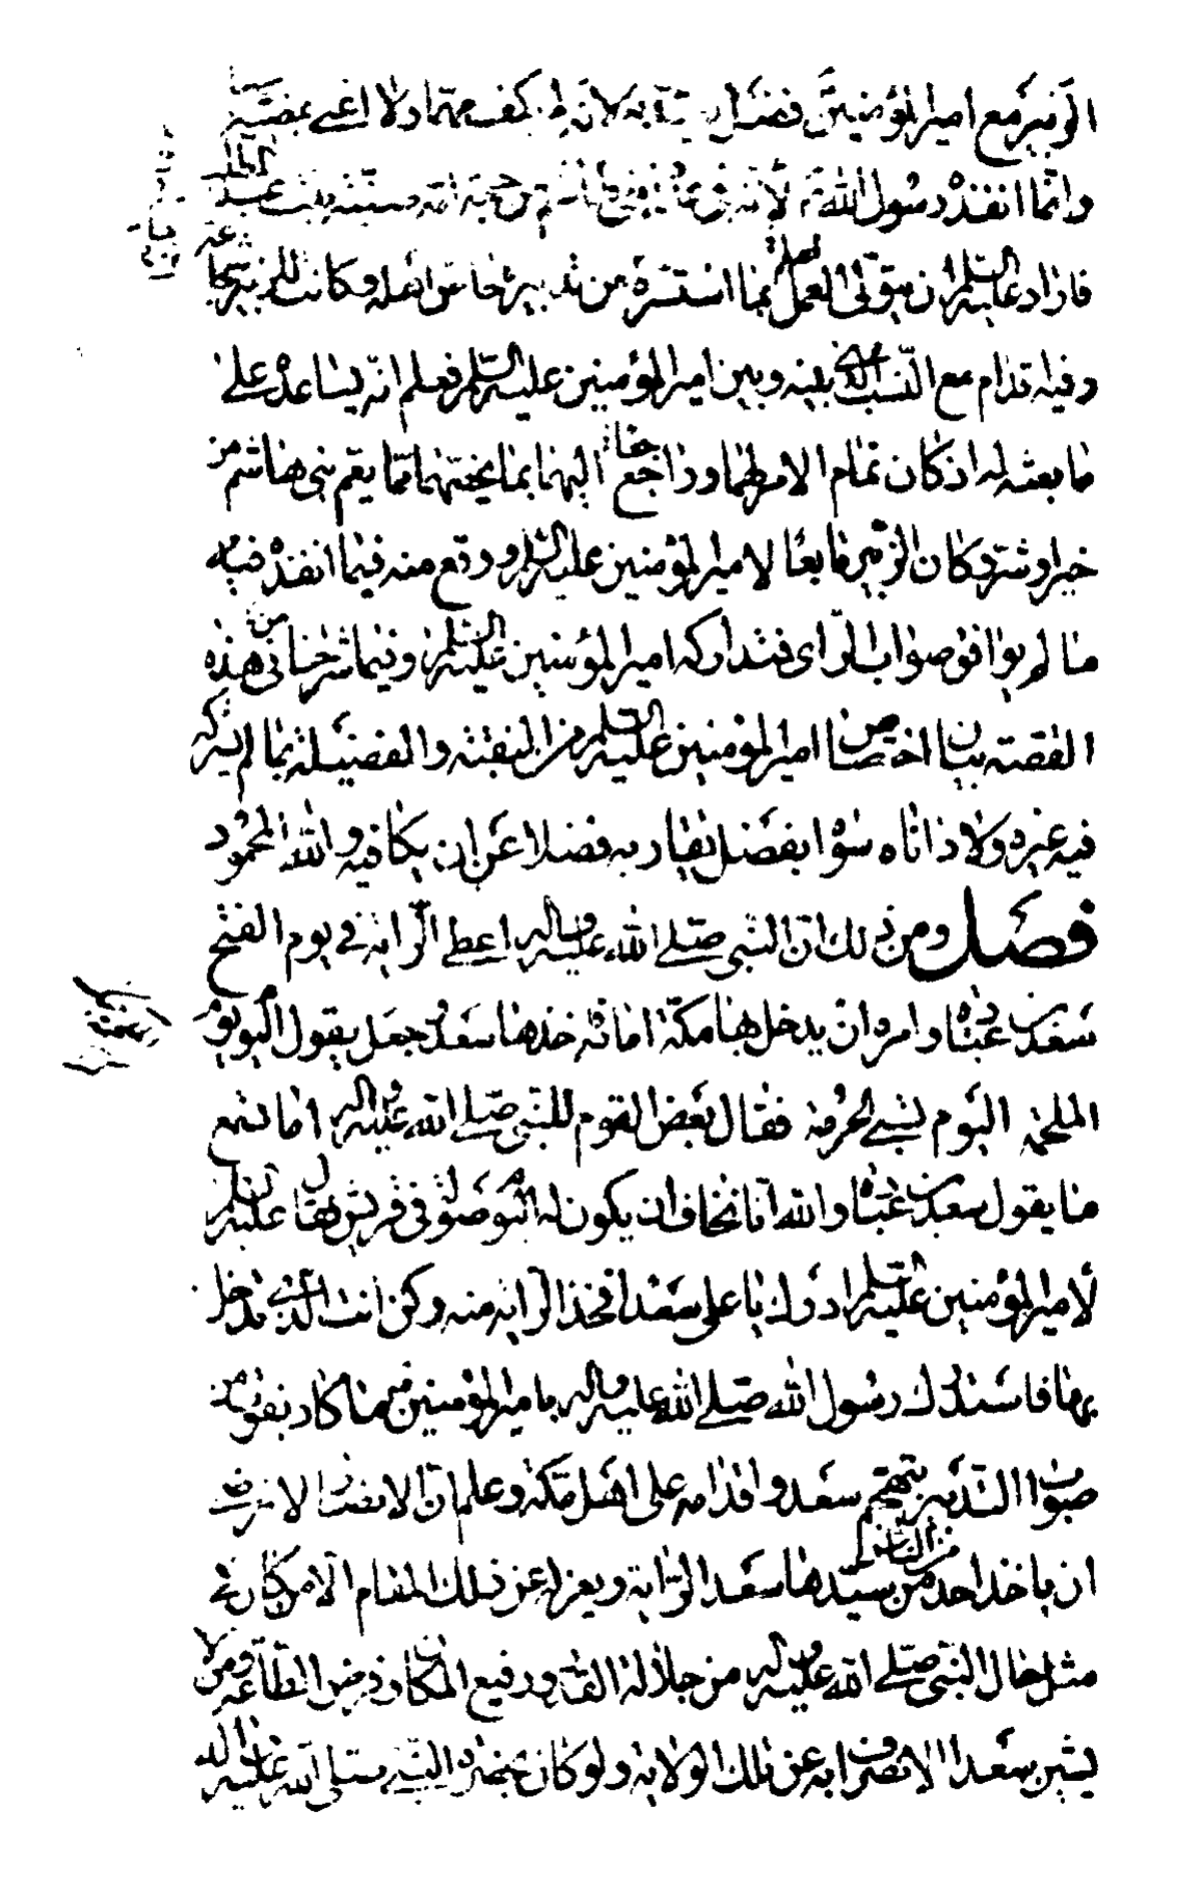 الزبير مع امير المؤمنين فضل يعتد به لانه لم يكف مهما ولا اغنى بمضيه
وانما انفذه رسول الله لانه في عداد بني هاشم من جهة امه صفية بنت عبد المطلب
فاراد عليه السلم ان يتولى العمل بما استسره من تدبيره خاص اهله وكانت للزبير شجاعة
وفيه اقدام مع النسب الذي بينه وبين امير المؤمنين عليه السلم فعلم انه يساعده على
ما بعثه له اذ كان تمام الامر لهما وراجعا اليهما بما يخصهما مما يعم بني هاشم من
خير او شر وكان الزبير تابعا لامير المؤمنين عليه السلم ووقع منه فيما انفذه فيه
ما لم يوافق صواب الراى فتداركه امير المؤمنين عليه السلم وفيما شرحناه من هذه
القصة بيان اختصاص امير المؤمنين عليه السلم من المنقبة والفضيلة بما لم يشركه
فيه غيره ولا داناه سواه بفضل يقاربه فضلا عن ان يكافيه والله المحمود
فصل ومن ذلك ان النبي صلى الله عليه واله اعطى الراية في يوم الفتح
سعد بن عبادة وامره ان يدخل بها مكة امامه فاخذها سعد وجعل يقول اليوم يوم
الملحمة اليوم تسبى الحرمة فقال بعض القوم للنبي صلى الله عليه واله اما تسمع
ما يقول سعد بن عبادة والله انا نخاف ان يكون له اليوم صولة في قريش فقال عليه السلم
لامير المؤمنين عليه السلم ادرك يا على سعدا فخذ الراية منه وكن انت الذي تدخل
بها فاستدرك رسول الله صلى الله عليه واله بامير المؤمنين مهما كاد يفوت من
صواب التدبير بتهجم سعد واقدامه على اهل مكة وعلم ان الانصار لا ترضى
ان ياخذ احد من الناس من سيدها سعد الراية ويعزله عن ذلك المقام الا من كان في
مثل حال النبي صلى الله عليه واله من جلالة القدر ورفيع المكان وفرض الطاعة ومن لا
يشين سعدا الانصراف به عن تلك الولاية ولو كان بحضرة النبي صلى الله عليه واله